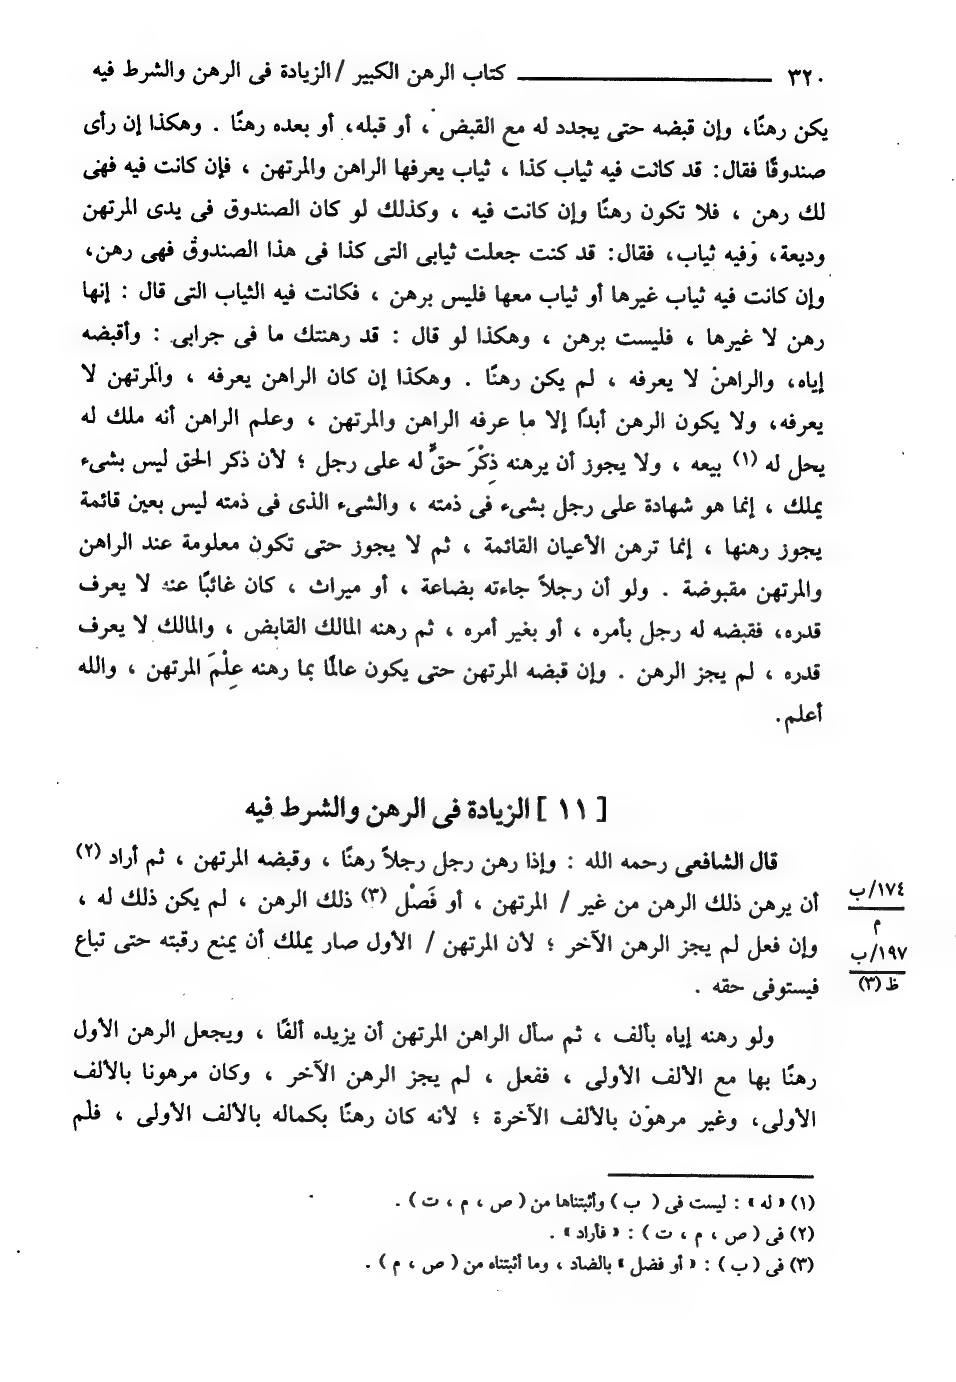 ٣٢٠ ــــــــــــــــ كتاب الرهن الكبير / الزيادة فى الرهن والشرط فيه
يكن رهنًا، وإن قبضه حتى يجدد له مع القبض ، أو قبله، أو بعده رهنًا . وهكذا إن رأى
صندوقًا فقال: قد كانت فيه ثياب كذا ، ثياب يعرفها الراهن والمرتهن ، فإن كانت فيه فهى
لك رهن ، فلا تكون رهنًا وإن كانت فيه ، وكذلك لو كان الصندوق فى يدى المرتهن
وديعة، وفيه ثياب، فقال: قد كنت جعلت ثيابى التى كذا فى هذا الصندوق فهى رهن،
وإن كانت فيه ثياب غيرها أو ثياب معها فليس برهن ، فكانت فيه الثياب التى قال : إنها
رهن لا غيرها ، فليست برهن ، وهكذا لو قال : قد رهنتك ما فى جرابى : وأقبضه
إياه، والراهن لا يعرفه ، لم يكن رهنًا . وهكذا إن كان الراهن يعرفه ، والمرتهن لا
يعرفه، ولا يكون الرهن أبدًا إلا ما عرفه الراهن والمرتهن ، وعلم الراهن أنه ملك له
يحل له (١) بيعه ، ولا يجوز أن يرهنه ذِكْرَ حقٍّ له على رجل ؛ لأن ذكر الحق ليس بشىء
يملك ، إنما هو شهادة على رجل بشىء فى ذمته ، والشىء الذى فى ذمته ليس بعين قائمة
يجوز رهنها ، إنما ترهن الأعيان القائمة ، ثم لا يجوز حتى تكون معلومة عند الراهن
والمرتهن مقبوضة . ولو أن رجلاً جاءته بضاعة ، أو ميراث ، كان غائبًا عنه لا يعرف
قدره، فقبضه له رجل بأمره ، أو بغير أمره ، ثم رهنه المالك القابض ، والمالك لا يعرف
قدره ، لم يجز الرهن . وإن قبضه المرتهن حتى يكون عالمًا بما رهنه عِلْمَ المرتهن ، والله
أعلم.
[ ١١ ] الزيادة فى الرهن والشرط فيه
قال الشافعى رحمه الله : وإذا رهن رجل رجلاً رهنًا ، وقبضه المرتهن ، ثم أراد (٢)
أن يرهن ذلك الرهن من غير / المرتهن ، أو فَصْل (٣) ذلك الرهن ، لم يكن ذلك له ،
وإن فعل لم يجز الرهن الآخر ؛ لأن المرتهن / الأول صار يملك أن يمنع رقبته حتى تباع
فيستوفى حقه .
١٧٤/ب
م
١٩٧/ب
ظ (٣)
ولو رهنه إياه بألف ، ثم سأل الراهن المرتهن أن يزيده ألفًا ، ويجعل الرهن الأول
رهنًا بها مع الألف الأولى ، ففعل ، لم يجز الرهن الآخر ، وكان مرهونا بالألف
الأولى، وغير مرهون بالألف الآخرة ؛ لأنه كان رهنًا بكماله بالألف الأولى ، فلم
(١) « له » : ليست فى ( ب ) وأثبتناها من ( ص ، م ، ت ) .
(٢) فى ( ص ، م ، ت ) : « فأراد » .
(٣) فى ( ب ) : « أو فضل » بالضاد ، وما أثبتناه من ( ص ، م ) .